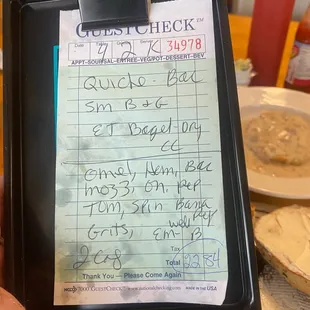 GUESTCHECK™
DATE 4 GUESTS 2 K 34978
APPT-SOUP/SAL-ENTREE-VEG/POT-DESSERT-BEV
Quiche - Bac
Sm B & G
ET Bagel-Dry
CC
Omel, Ham, Bac
Mozz, On, Pep
Tom, Spin Bana
Pep
Grits, well
Em - B
2 Cof
Tax
Total 32.84
Thank You — Please Come Again
GUESTCHECK™
MADE IN USA